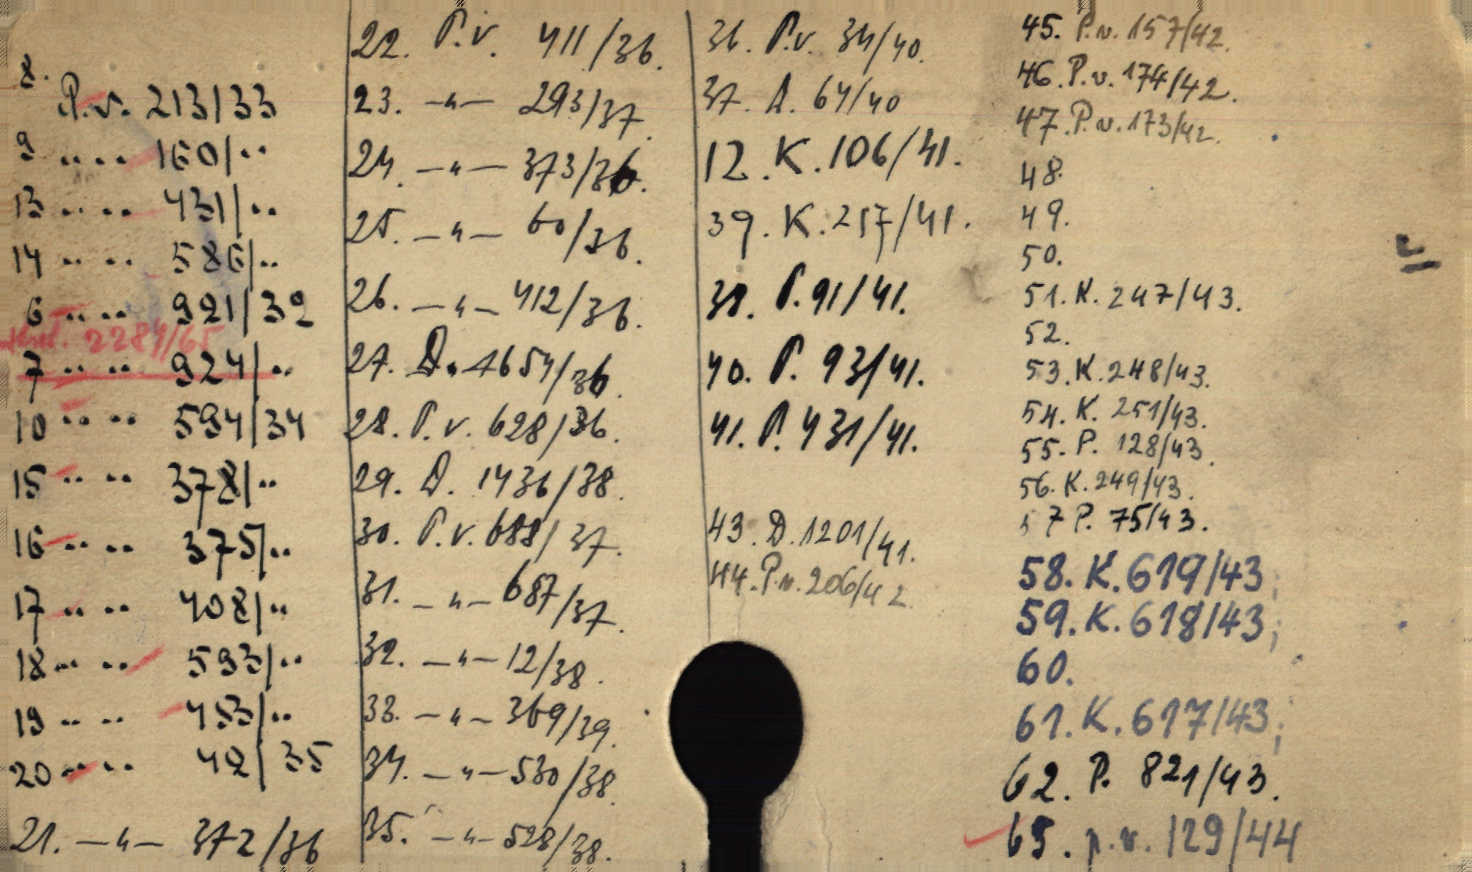 8.
P.v. 213/33
9 " " 160/"
13 " " 431/"
14 " " 586/"
6 " " 921/32
2284/65
7 " " 924/"
10 " " 594/34
15 " " 378/"
16 " " 375/"
17 " " 408/"
18 " " 593/"
19 " " 453/"
20 " " 42/35
21. —"— 372/36
22. P.v. 411/36.
23. —"— 293/37.
24. —"— 373/36.
25. —"— 60/36.
26. —"— 412/36.
27. D. 4654/36.
28. P.v. 628/36.
29. D. 1436/38.
30. P.v. 688/37.
31. —"— 687/37.
32. —"— 12/38.
33. —"— 369/39.
34. —"— 530/38.
35. —"— 528/38.
36. P.v. 34/40.
37. D. 64/40
12. K. 106/41.
39. K. 257/41.
38. P. 91/41.
40. P. 93/41.
41. P. 431/41.
43. D. 1201/41.
44. P.v. 206/42
45. P.v. 157/42.
46. P.v. 174/42.
47. P.v. 173/42.
48.
49.
50.
51. K. 247/43.
52.
53. K. 248/43.
54. K. 251/43.
55. P. 128/43.
56. K. 249/43.
57 P. 75/43.
58. K. 619/43;
59. K. 618/43;
60.
61. K. 617/43;
62. P. 821/43.
63. p.v. 129/44